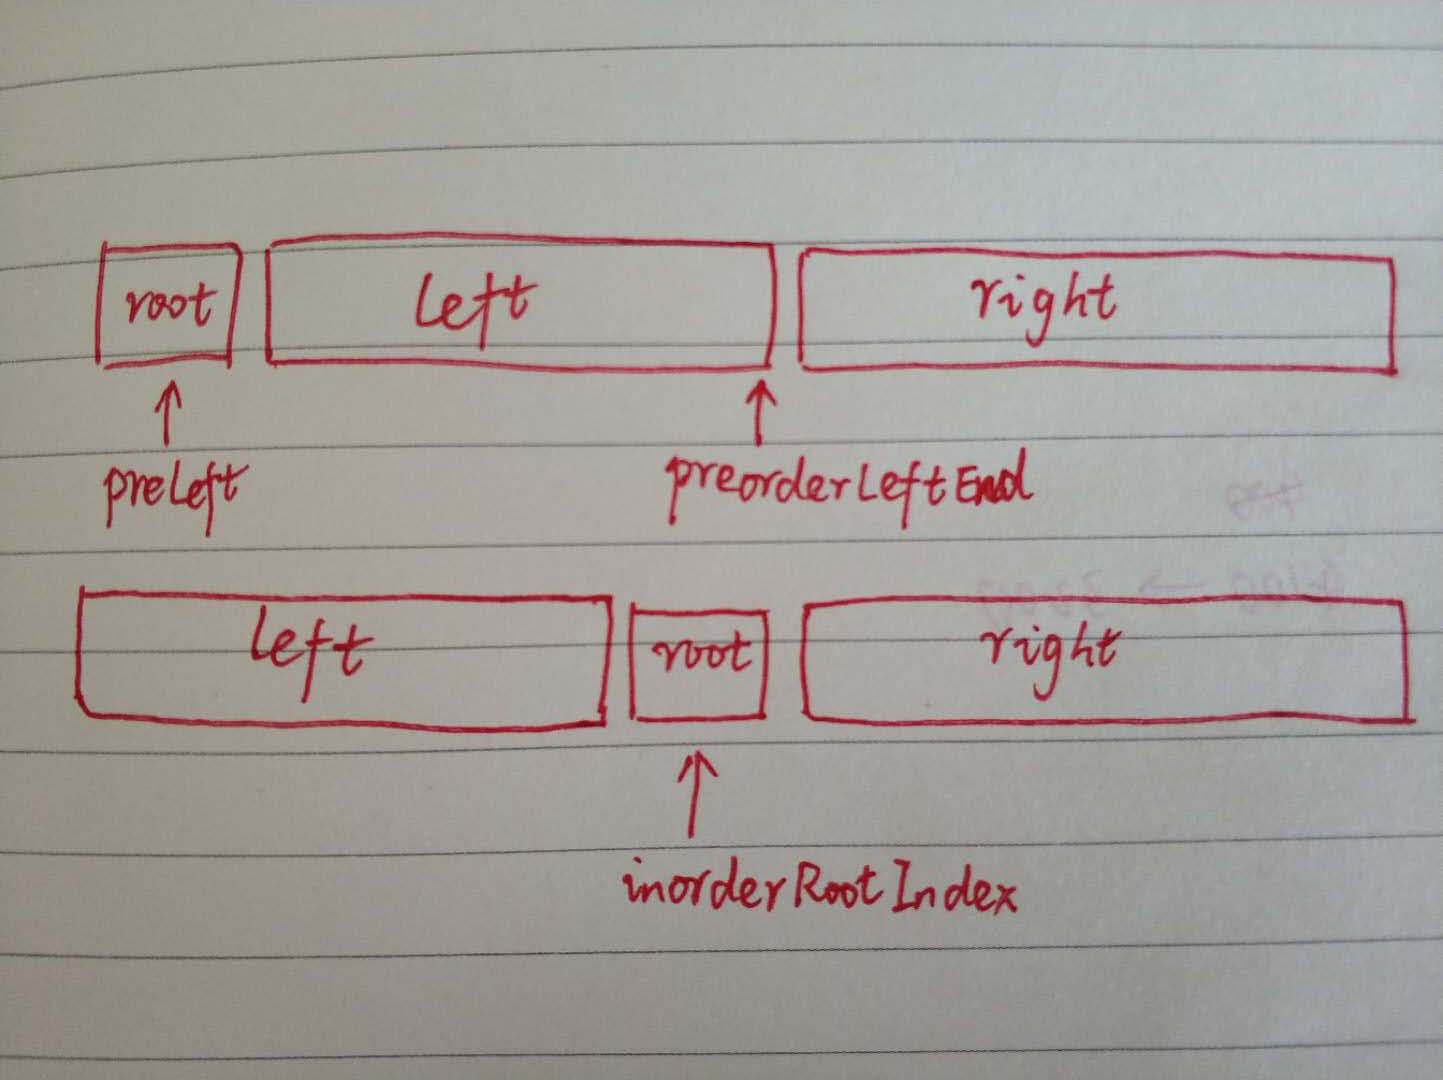 root left right
preLeft preorderLeftEnd
left root right
inorderRootIndex